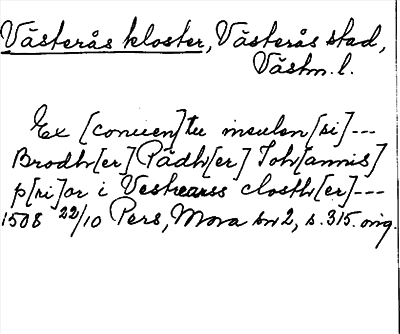 Västerås kloster, Västerås stad,
Västm. l.
Ex [conuen]tu insulen[si]---
Brodh[er] Pädh[er] Joh[annis]
p[ri]or i Vestrarss closth[er]---
1508 22/10 Pers, Mora sn 2, s. 315. orig.